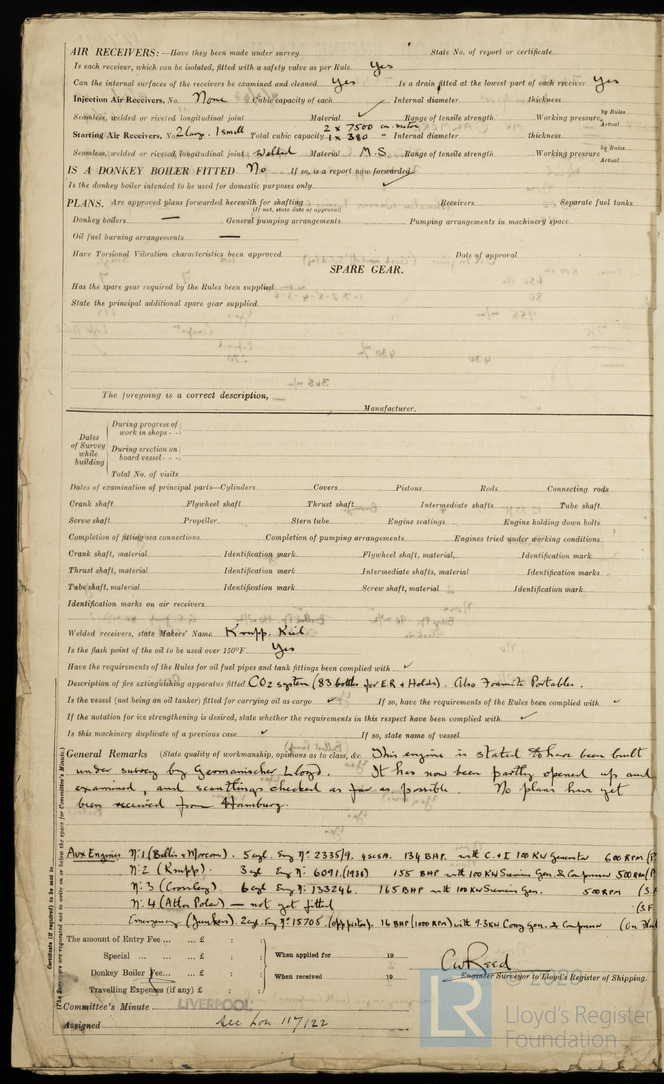 AIR RECEIVERS:—Have they been made under survey State No. of report or certificate
Is each receiver, which can be isolated, fitted with a safety valve as per Rule Yes
Can the internal surfaces of the receivers be examined and cleaned Yes Is a drain fitted at the lowest part of each receiver Yes
Injection Air Receivers, No. None Cubic capacity of each Internal diameter thickness
Seamless, welded or riveted longitudinal joint Material ✓ Range of tensile strength Working pressure by Rules Actual
Starting Air Receivers, No. 2 large. 1 small Total cubic capacity 2 x 7500 1 x 380 " Internal diameter thickness
Seamless, welded or riveted longitudinal joint Welded Material M.S Range of tensile strength Working pressure by Rules Actual
IS A DONKEY BOILER FITTED No If so, is a report now forwarded ✓
Is the donkey boiler intended to be used for domestic purposes only
PLANS. Are approved plans forwarded herewith for shafting (If not, state date of approval) Receivers Separate fuel tanks
Donkey boilers — General pumping arrangements Pumping arrangements in machinery space
Oil fuel burning arrangements —
Have Torsional Vibration characteristics been approved Date of approval
SPARE GEAR.
Has the spare gear required by the Rules been supplied
State the principal additional spare gear supplied
The foregoing is a correct description,
Manufacturer.
Dates of Survey while building
During progress of work in shops - -
During erection on board vessel - - -
Total No. of visits
Dates of examination of principal parts—Cylinders Covers Pistons Rods Connecting rods
Crank shaft Flywheel shaft Thrust shaft Intermediate shafts Tube shaft
Screw shaft Propeller Stern tube Engine seatings Engine holding down bolts
Completion of fitting sea connections Completion of pumping arrangements Engines tried under working conditions
Crank shaft, material Identification mark Flywheel shaft, material, Identification mark
Thrust shaft, material Identification mark Intermediate shafts, material Identification marks
Tube shaft, material Identification mark Screw shaft, material Identification mark
Identification marks on air receivers
Welded receivers, state Makers' Name Krupp. Kiel
Is the flash point of the oil to be used over 150°F Yes
Have the requirements of the Rules for oil fuel pipes and tank fittings been complied with ✓
Description of fire extinguishing apparatus fitted CO2 system (83 bottles for ER & Holds). Also Foamite Portables.
Is the vessel (not being an oil tanker) fitted for carrying oil as cargo ✓ If so, have the requirements of the Rules been complied with ✓
If the notation for ice strengthening is desired, state whether the requirements in this respect have been complied with ✓
Is this machinery duplicate of a previous case ✓ If so, state name of vessel
General Remarks (State quality of workmanship, opinions as to class, &c. This engine is stated to have been built
under survey by Germanischer Lloyd. It has now been partly opened up and
examined, and scantlings checked as far as possible. No plans have yet
been received from Hamburg.
Aux Engines No 1 (Bellis & Morcom). 5 cyl. Eng No 2335/9. 4SCSA. 134 BHP. with C. & I 100 KW Generator 600 RPM (P
No 2 (Krupp). 3 cyl Eng No 6091. (1938) 155 BHP with 100 KW Siemens Gen. & Compressor 500 rpm (P
No 3 (Crossley). 6 cyl Eng No 133246. 165 BHP with 100 KW Siemens Gen. 500 RPM (S.F
No 4 (Atlas Polar) — not yet fitted (S.F
Emergency (Junkers). 2 cyl. Eng No 15705. (opp piston). 16 BHP (1000 RPM) with 9.3 KW Gen. & Compressor (On
Certificate (if required) to be sent to
(The Surveyors are requested not to write on or below the space for Committee's Minute.)
The amount of Entry Fee ... £ : :
Special ... ... £ : : When applied for 19
Donkey Boiler Fee ... £ : : When received 19
Travelling Expenses (if any) £ : :
C W Reed
Engineer Surveyor to Lloyd's Register of Shipping.
Committee's Minute LIVERPOOL
Assigned See Lon. 117122
© 2020
LR
Lloyd's Register
Foundation